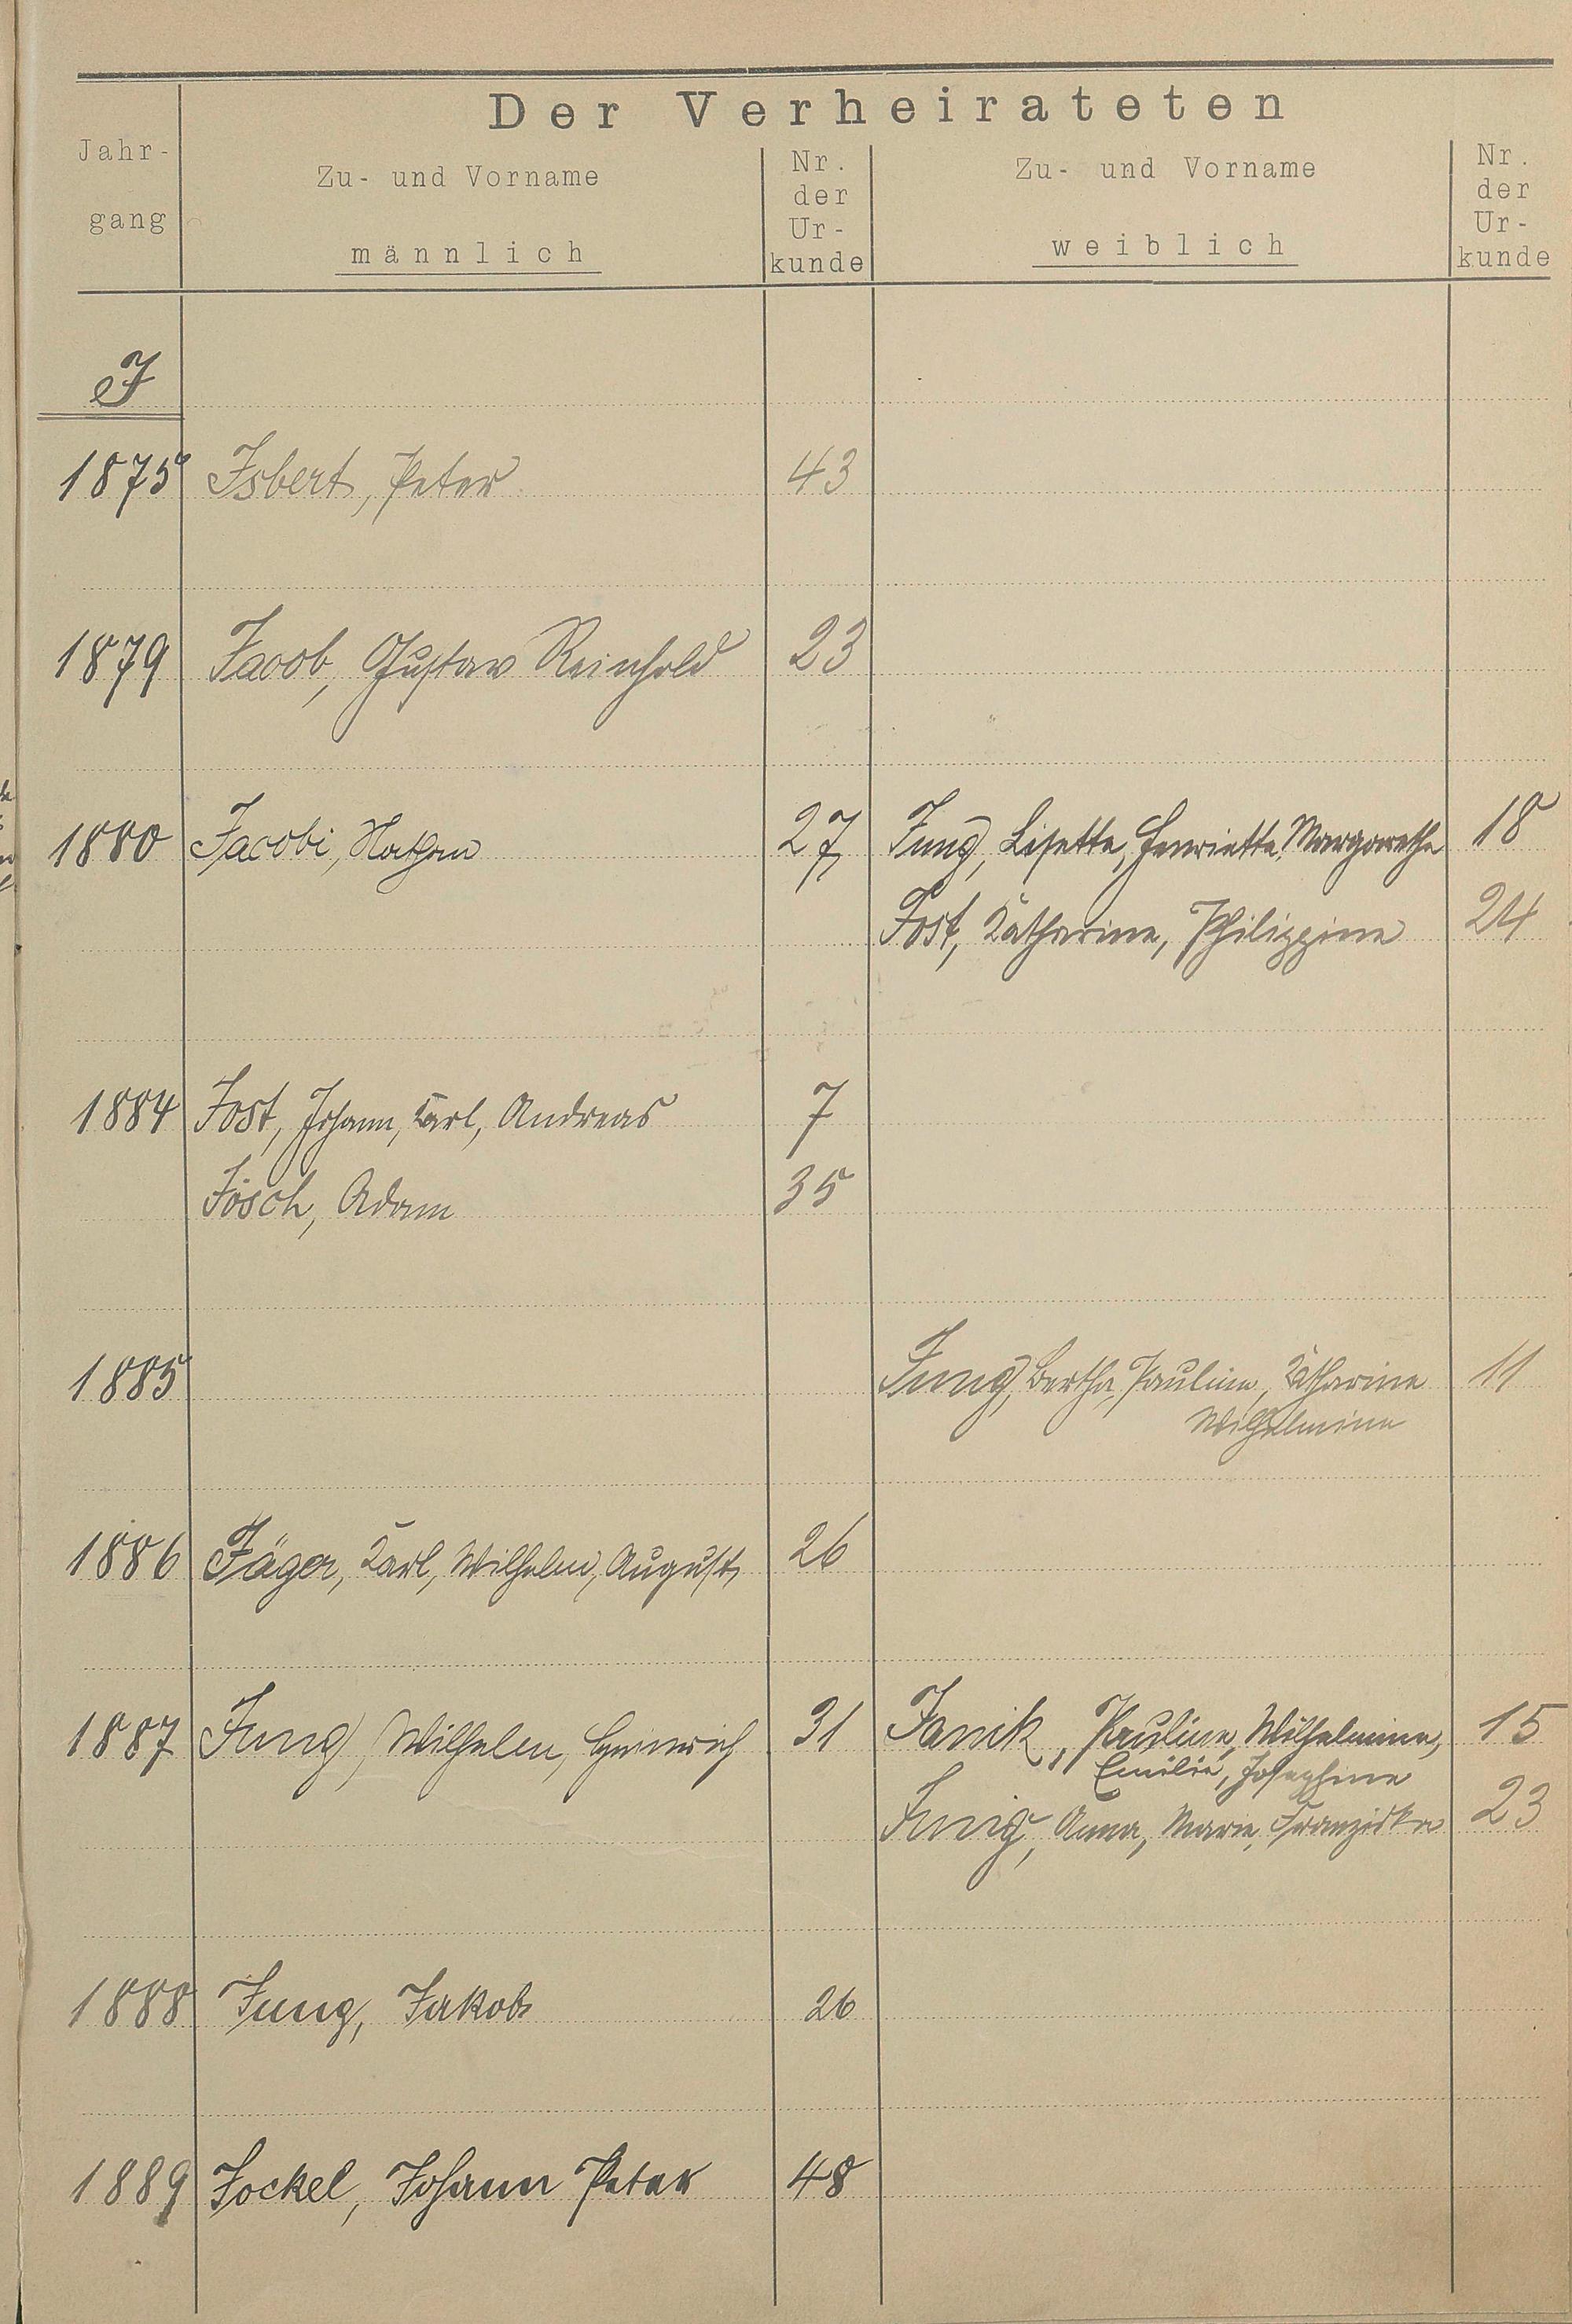 Der Verheirateten
Jahr-
gang
Zu- und Vorname
männlich
Nr.
der
Ur-
kunde
Zu- und Vorname
weiblich
Nr.
der
Ur-
kunde
J
1875 Isbert, Peter 43
1879 Jacob, Gustav Reinhold 23
1880 Jacobi, Nathan 27 Jung, Lisette, Henriette, Margarethe 18
Jost, Katharine, Philippine 24
1884 Jost, Johann, Karl, Andreas 7
Jösch, Adam 35
1885 Jung, Bertha, Pauline, Katharine 11
Wilhelmine
1886 Jäger, Karl, Wilhelm, August 26
1887 Jung, Wilhelm, Heinrich 31 Janik, Pauline, Wilhelmine, 15
Emilie, Josephine
Anna, Marie, Franziska 23
1888 Jung, Jakob 26
1889 Jockel, Johann Peter 48